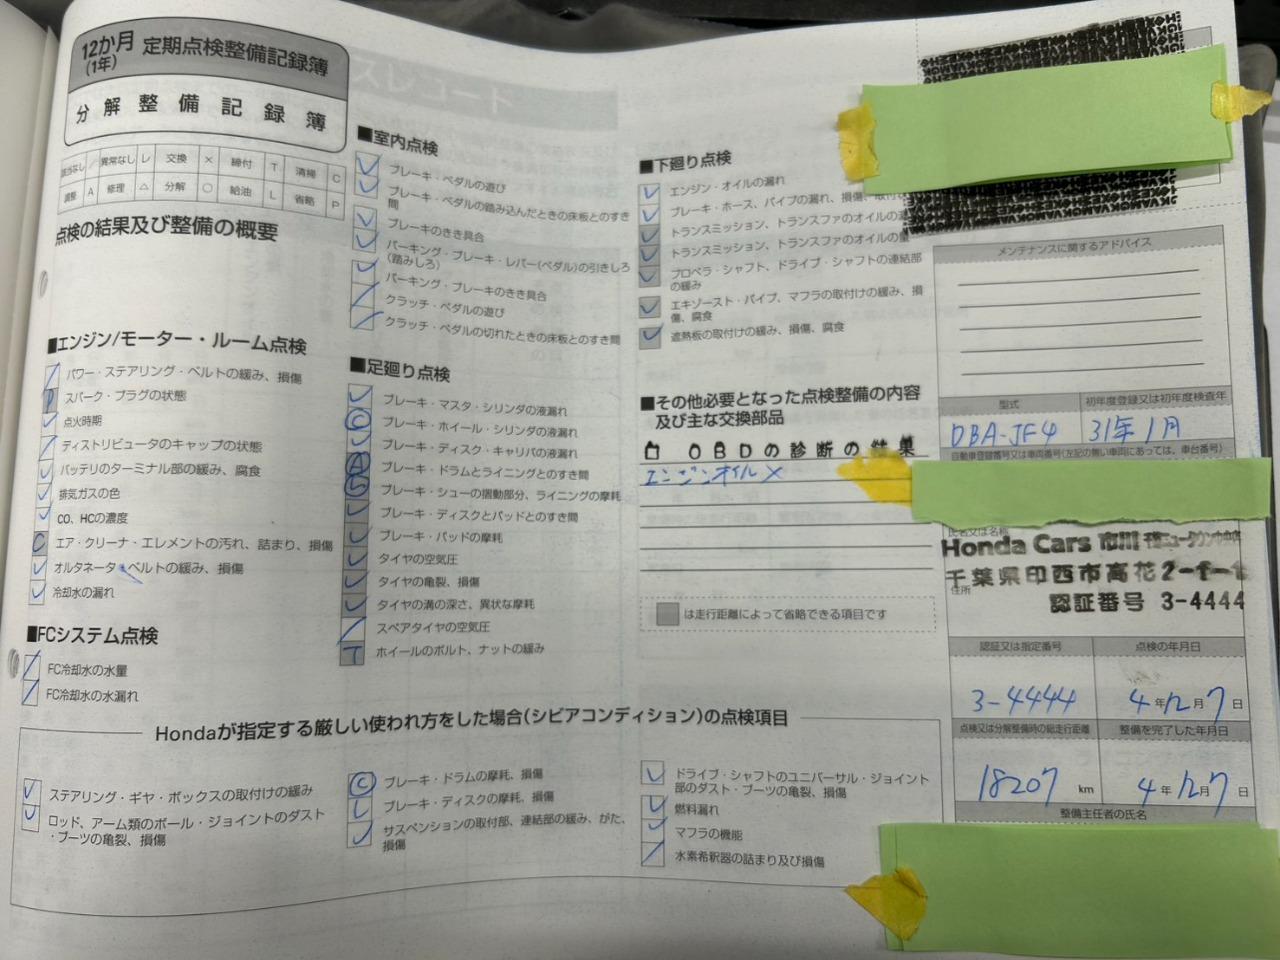 12か月
(1年)
定期点検整備記録簿
分解整備記録簿
該当なし ／ 異常なし レ 交換 × 締付 T 清掃 C
調整 A 修理 △ 分解 ○ 給油 L 省略 P
点検の結果及び整備の概要
■エンジン/モーター・ルーム点検
パワー・ステアリング・ベルトの緩み、損傷
P スパーク・プラグの状態
点火時期
ディストリビュータのキャップの状態
バッテリのターミナル部の緩み、腐食
排気ガスの色
CO、HCの濃度
C エア・クリーナ・エレメントの汚れ、詰まり、損傷
オルタネータ・ベルトの緩み、損傷
冷却水の漏れ
■FCシステム点検
FC冷却水の水量
FC冷却水の水漏れ
■室内点検
ブレーキ・ペダルの遊び
ブレーキ・ペダルの踏み込んだときの床板とのすき
間
ブレーキのきき具合
パーキング・ブレーキ・レバー(ペダル)の引きしろ
(踏みしろ)
パーキング・ブレーキのきき具合
クラッチ・ペダルの遊び
クラッチ・ペダルの切れたときの床板とのすき間
■足廻り点検
ブレーキ・マスタ・シリンダの液漏れ
ブレーキ・ホイール・シリンダの液漏れ
ブレーキ・ディスク・キャリパの液漏れ
ブレーキ・ドラムとライニングとのすき間
ブレーキ・シューの摺動部分、ライニングの摩耗
ブレーキ・ディスクとパッドとのすき間
ブレーキ・パッドの摩耗
タイヤの空気圧
タイヤの亀裂、損傷
タイヤの溝の深さ、異状な摩耗
スペアタイヤの空気圧
T ホイールのボルト、ナットの緩み
■下廻り点検
エンジン・オイルの漏れ
ブレーキ・ホース、パイプの漏れ、損傷、取付
トランスミッション、トランスファのオイルの
トランスミッション、トランスファのオイルの量
プロペラ・シャフト、ドライブ・シャフトの連結部
の緩み
エキゾースト・パイプ、マフラの取付けの緩み、損
傷、腐食
遮熱板の取付けの緩み、損傷、腐食
■その他必要となった点検整備の内容
及び主な交換部品
OBDの診断の結果
エンジンオイル ×
は走行距離によって省略できる項目です
メンテナンスに関するアドバイス
型式 初年度登録又は初年度検査年
DBA-JF4 31年1月
自動車登録番号又は車両番号(左記の無い車両にあっては、車台番号)
氏名又は名称
Honda Cars 市川
千葉県印西市高花
住所
認証番号 3-4444
認証又は指定番号 点検の年月日
3-4444 4年12月7日
点検又は分解整備時の総走行距離 整備を完了した年月日
18207 km 4年12月7日
整備主任者の氏名
Hondaが指定する厳しい使われ方をした場合(シビアコンディション)の点検項目
ステアリング・ギヤ・ボックスの取付けの緩み
ロッド、アーム類のボール・ジョイントのダスト
・ブーツの亀裂、損傷
C ブレーキ・ドラムの摩耗、損傷
ブレーキ・ディスクの摩耗、損傷
サスペンションの取付部、連結部の緩み、がた、
損傷
ドライブ・シャフトのユニバーサル・ジョイント
部のダスト・ブーツの亀裂、損傷
燃料漏れ
マフラの機能
水素希釈器の詰まり及び損傷